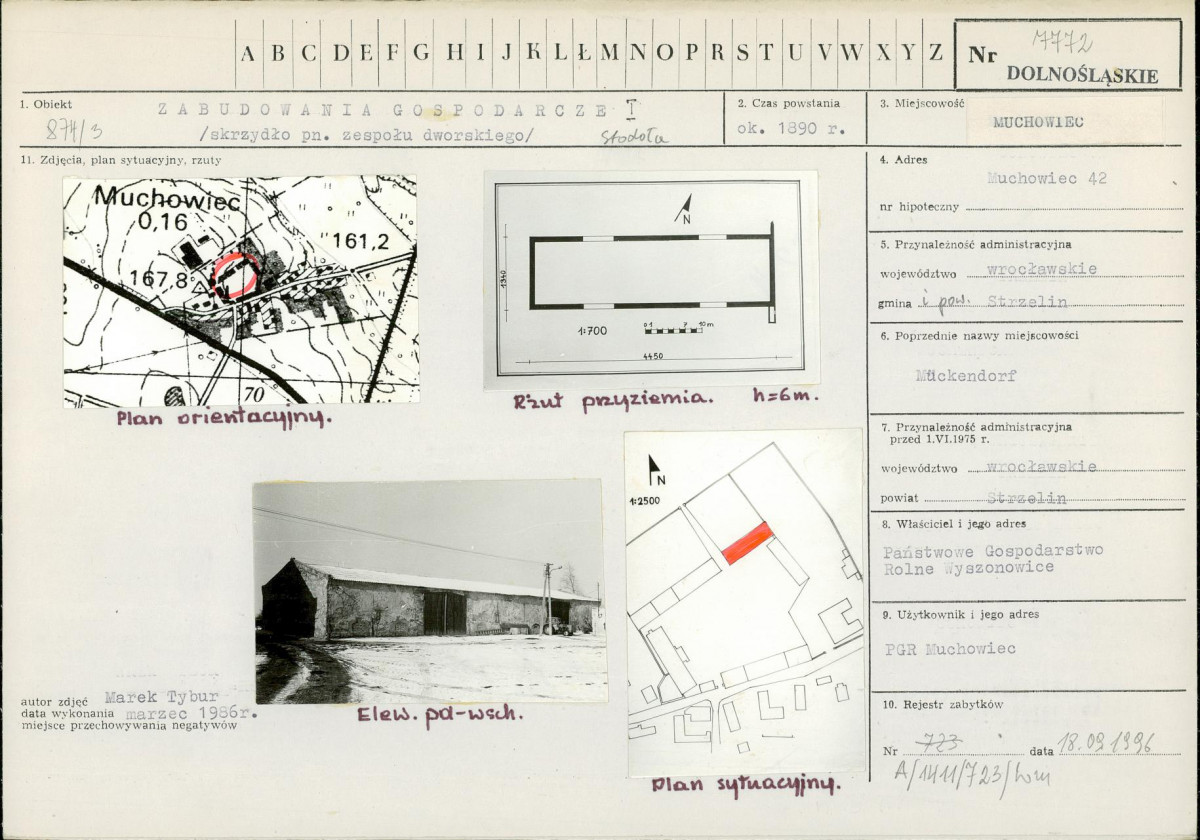 A B C D E F G H I J K L Ł M N O P R S T U V W X Y Z
Nr 7772
DOLNOŚLĄSKIE
1. Obiekt
ZABUDOWANIA GOSPODARCZE I
874/3
/skrzydło pn. zespołu dworskiego/ stodoła
2. Czas powstania
ok. 1890 r.
3. Miejscowość
MUCHOWIEC
11. Zdjęcia, plan sytuacyjny, rzuty
Muchowiec
0,16
161,2
167,8
70
Plan orientacyjny.
N
1340
1:700
0 1 7 10 m
4450
Rzut przyziemia. h=6m.
N
1:2500
Plan sytuacyjny.
Elew. pd-wsch.
autor zdjęć Marek Tybur
data wykonania marzec 1986r.
miejsce przechowywania negatywów
4. Adres
Muchowiec 42
nr hipoteczny
5. Przynależność administracyjna
województwo wrocławskie
gmina i pow. Strzelin
6. Poprzednie nazwy miejscowości
Mückendorf
7. Przynależność administracyjna
przed 1.VI.1975 r.
województwo wrocławskie
powiat Strzelin
8. Właściciel i jego adres
Państwowe Gospodarstwo
Rolne Wyszonowice
9. Użytkownik i jego adres
PGR Muchowiec
10. Rejestr zabytków
Nr 723 data 18.09.1996
A/1411/723/Wm